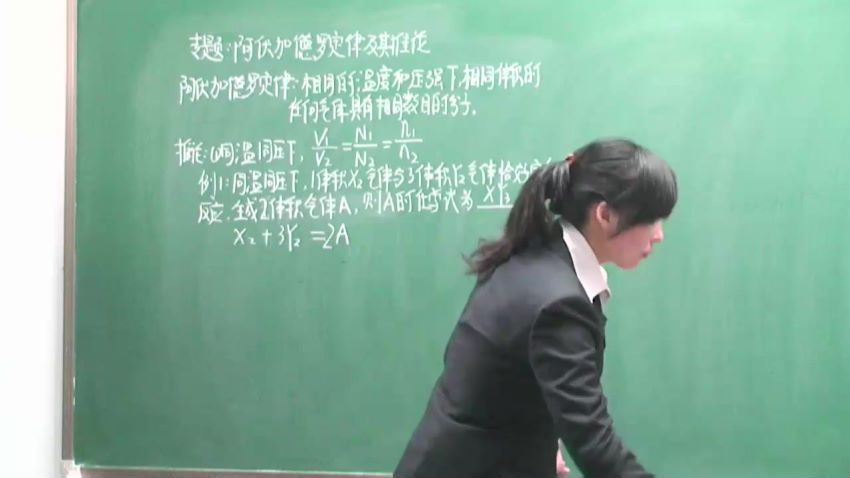 专题:阿伏加德罗定律及其推论
阿伏加德罗定律:相同的温度和压强下,相同体积的
任何气体具有相同数目的分子。
推论:(1)同温同压下, V₁/V₂ = N₁/N₂ = n₁/n₂
例1:同温同压下,1体积X₂气体与3体积Y₂气体恰好完
反应,生成2体积气体A,则A的化学式为 XY₃
X₂ + 3Y₂ = 2A